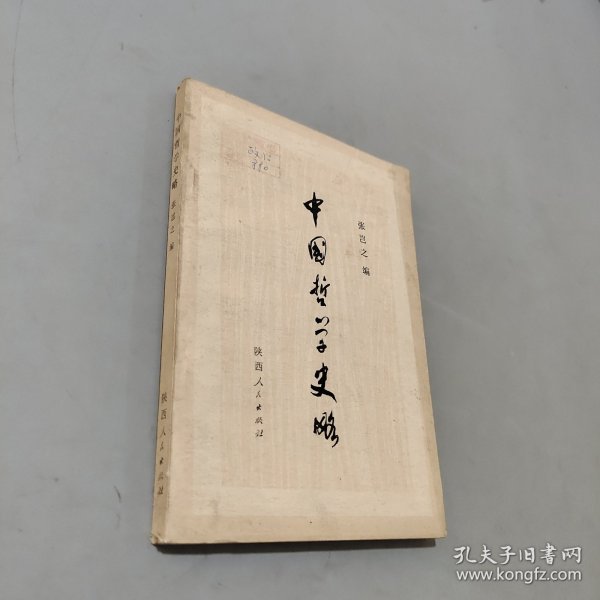 中国哲学史略
张岂之 编
陕西人民出版社
中国哲学史略 张岂之 编
陕西人民出版社
孔夫子旧书网
www.kongfz.com